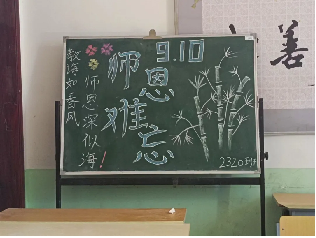 9.10
师恩难忘
教诲如春风
师恩深似海!
2320班
善